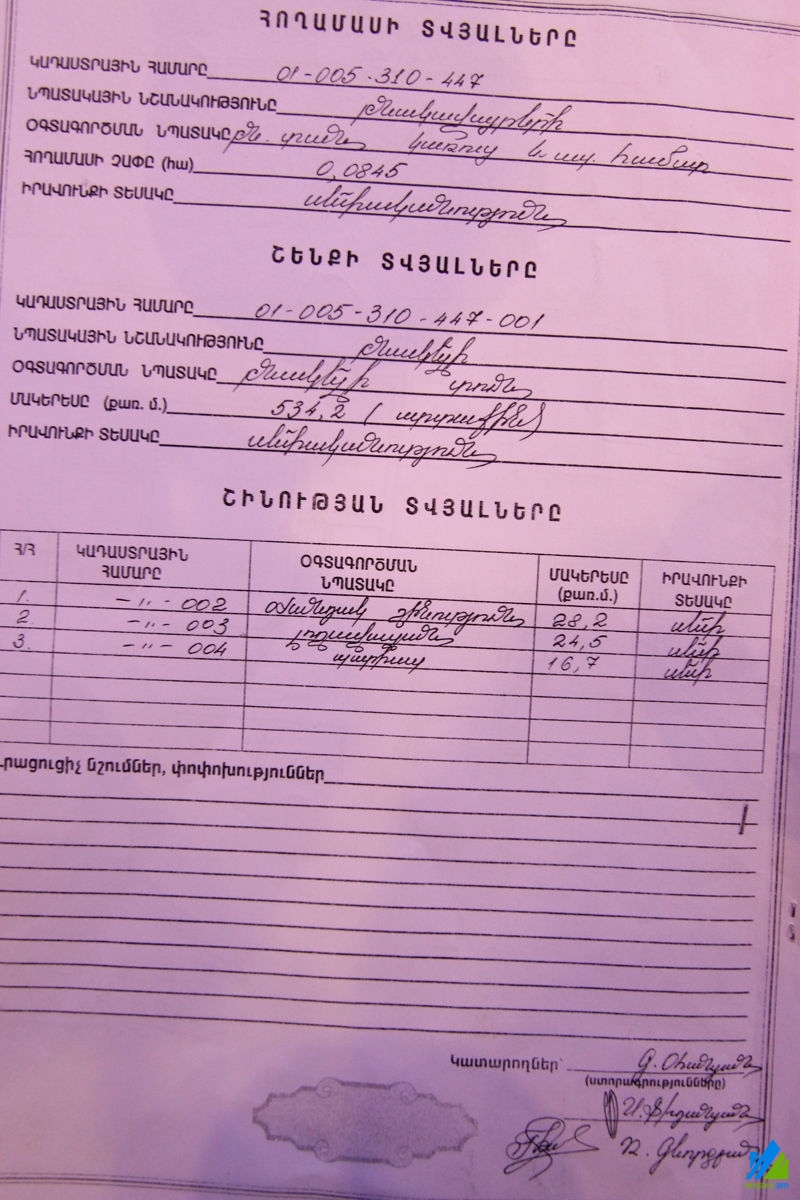 ՀՈՂԱՄԱՍԻ ՏՎՅԱԼՆԵՐԸ
ԿԱԴԱՍՏՐԱՅԻՆ ՀԱՄԱՐԸ 01-005-310-447
ՆՊԱՏԱԿԱՅԻՆ ՆՇԱՆԱԿՈՒԹՅՈՒՆԸ բնակավայրերի
ՕԳՏԱԳՈՐԾՄԱՆ ՆՊԱՏԱԿԸ բն. տան կառուց և սպ. համար
ՀՈՂԱՄԱՍԻ ՉԱՓԸ (հա) 0,0845
ԻՐԱՎՈՒՆՔԻ ՏԵՍԱԿԸ սեփականություն
ՇԵՆՔԻ ՏՎՅԱԼՆԵՐԸ
ԿԱԴԱՍՏՐԱՅԻՆ ՀԱՄԱՐԸ 01-005-310-447-001
ՆՊԱՏԱԿԱՅԻՆ ՆՇԱՆԱԿՈՒԹՅՈՒՆԸ բնակելի
ՕԳՏԱԳՈՐԾՄԱՆ ՆՊԱՏԱԿԸ բնակելի տուն
ՄԱԿԵՐԵՍԸ (քառ. մ.) 534,2 (արտաքին)
ԻՐԱՎՈՒՆՔԻ ՏԵՍԱԿԸ սեփականություն
ՇԻՆՈՒԹՅԱՆ ՏՎՅԱԼՆԵՐԸ
Հ/Հ ԿԱԴԱՍՏՐԱՅԻՆ ՀԱՄԱՐԸ ՕԳՏԱԳՈՐԾՄԱՆ ՆՊԱՏԱԿԸ ՄԱԿԵՐԵՍԸ (քառ.մ.) ԻՐԱՎՈՒՆՔԻ ՏԵՍԱԿԸ
1. -〃- 002 օժանդակ շինություն 28,2 սեփ
2. -〃- 003 լողավազան 24,5 սեփ
3. -〃- 004 16,7 սեփ
րացուցիչ նշումներ, փոփոխություններ
Կատարողներ՝ Գ. Օհանյան
(ստորագրությունները)
Ռ. Գևորգյան